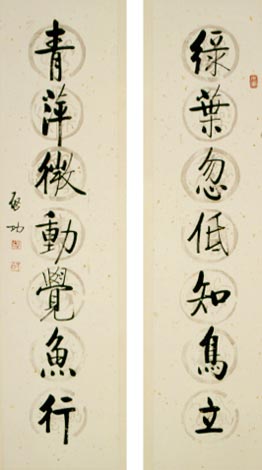 綠葉忽低知鳥立
青萍微動覺魚行
啓功